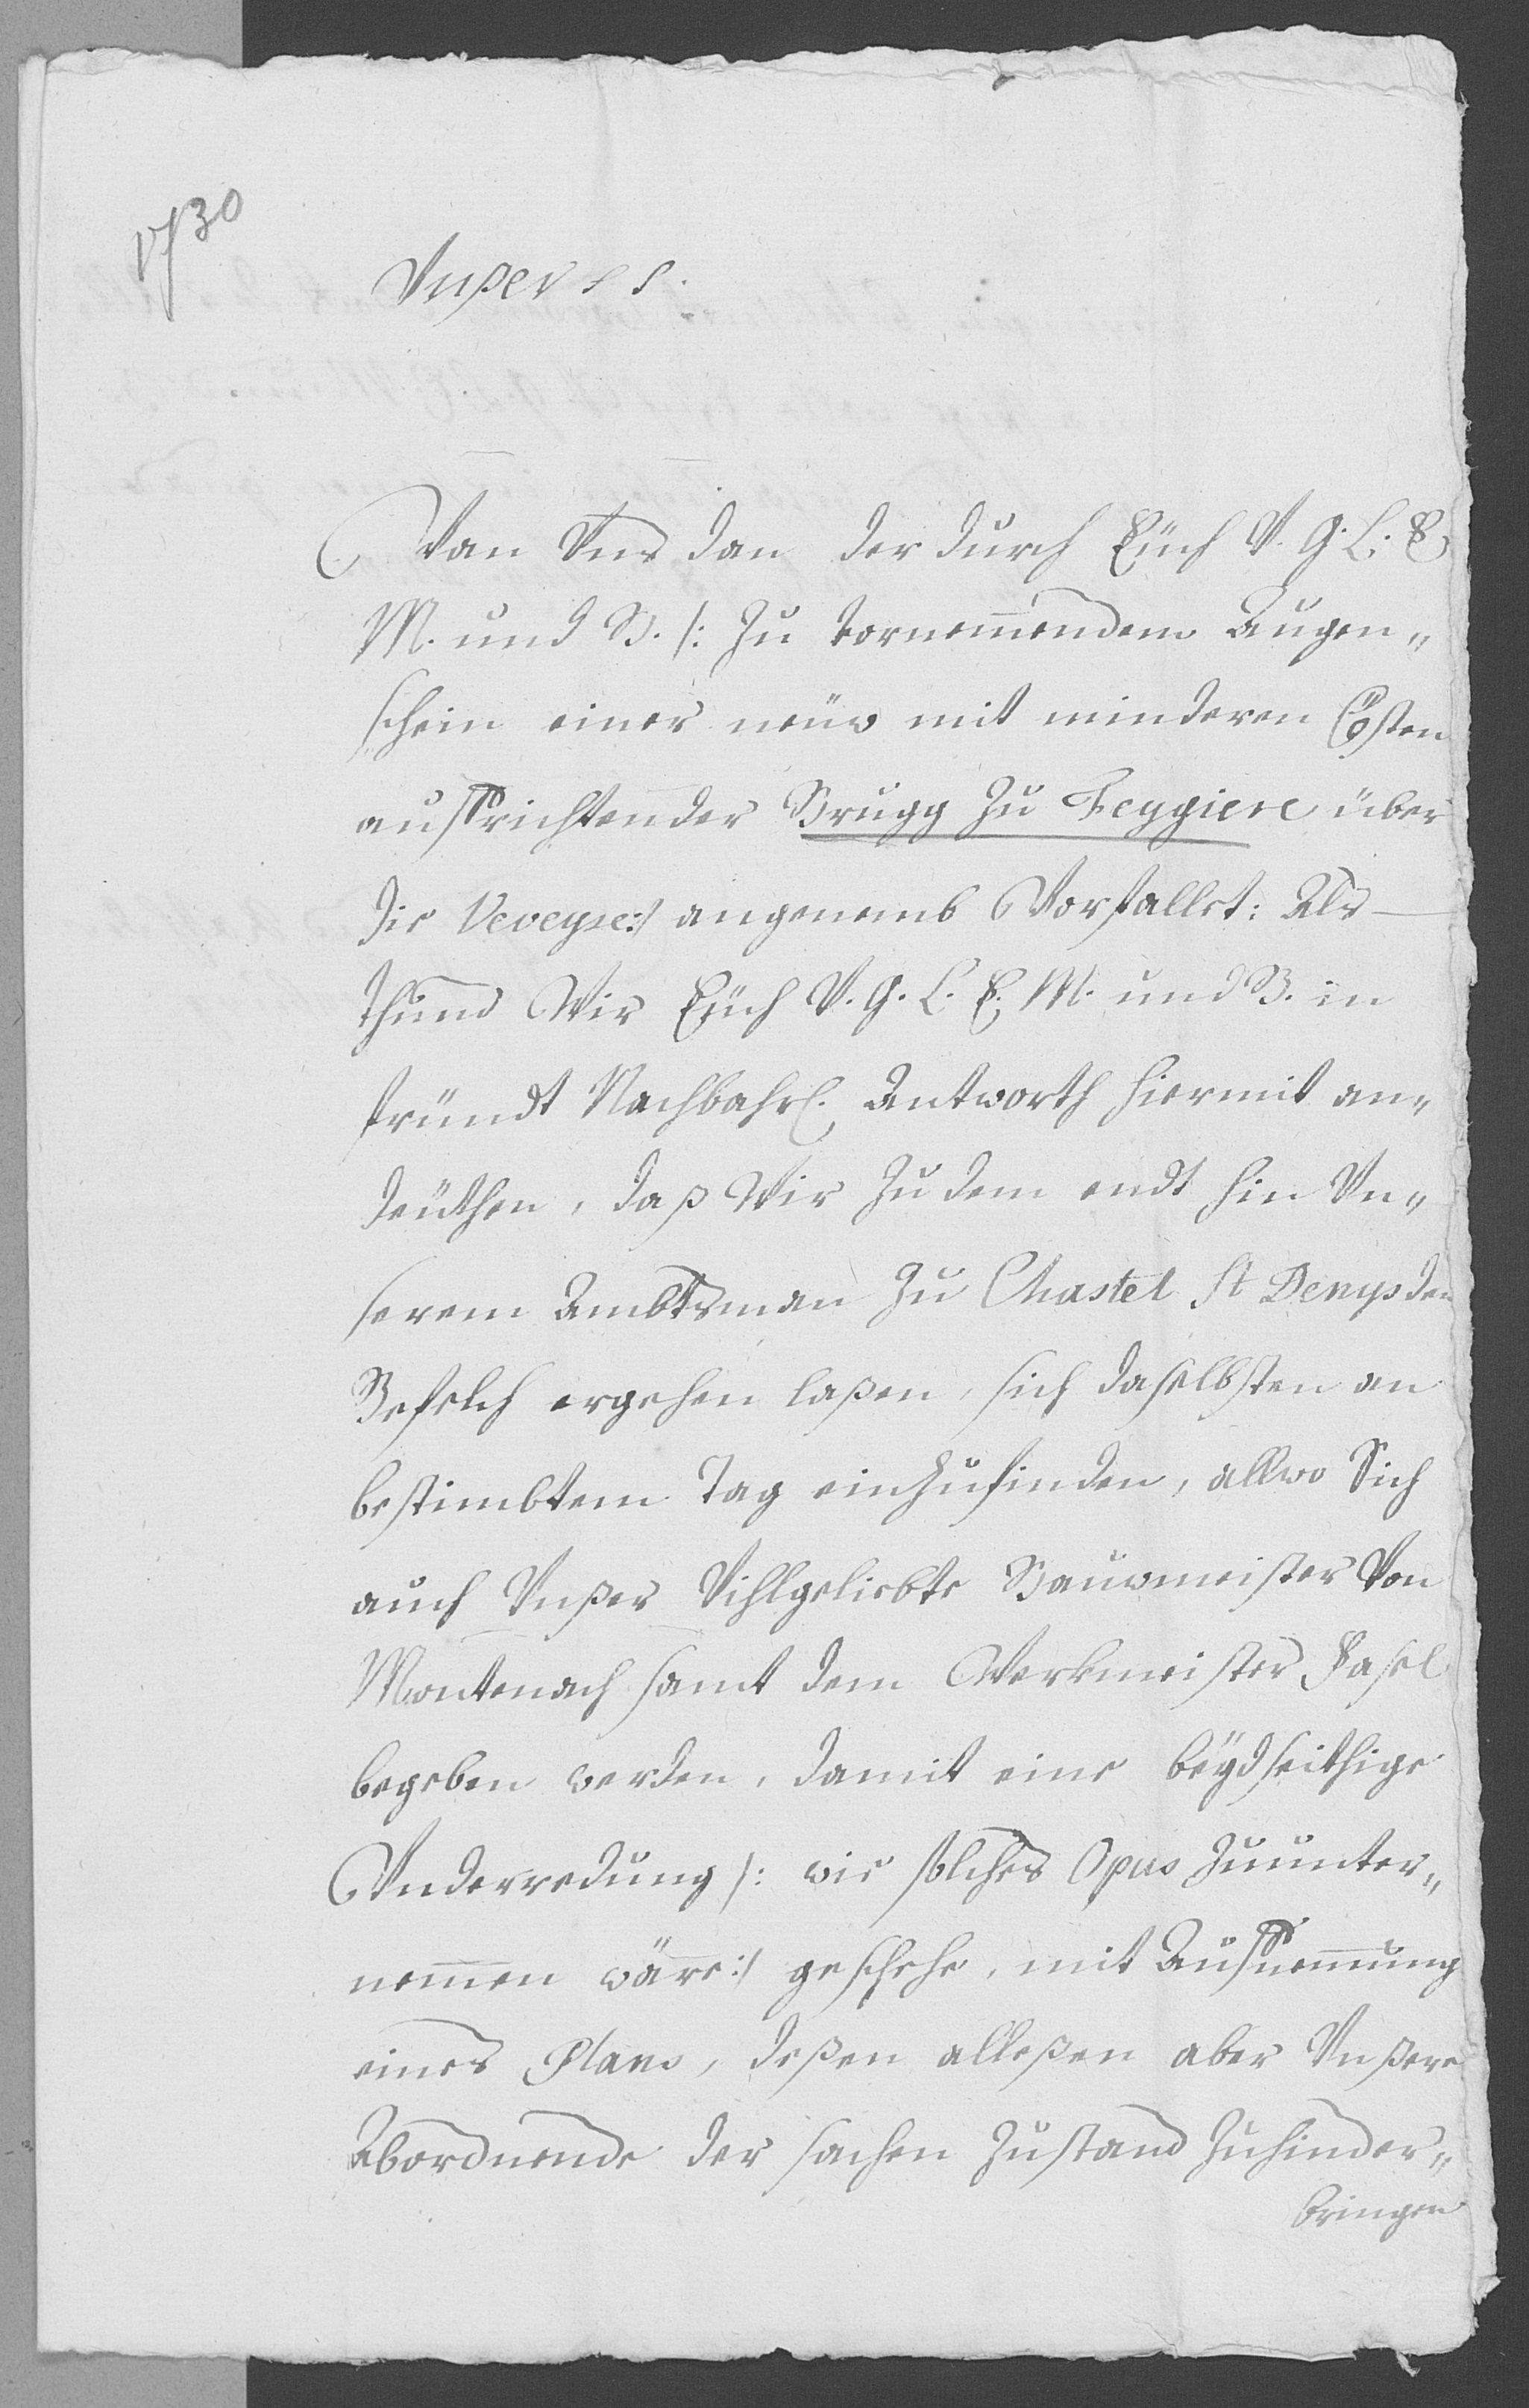 1730
Unßer s s.
Wan Uns dan der durch Eüch V. G. L. E.
M. und B. /: zu vornemmendem Augen„
schein einer neüw mit minderen Cösten
auffrichtender Brugg zu Feygiere über
die Veveyse:/ angenemb Vorfallet: Als
thund Wir Eüch V. G. L. E. M. und B. in
fründt Nachbahrl. Antworth hiermit an„
deüthen, daß Wir zu dem endt hin Un„
serem Ambtsman zu Chastel St Denys den
Befelch ergehen laßen, sich daselbsten an
bestimbtem Tag einzufinden, allwo Sich
auch Unßer Vihlgeliebte Bauwmeister Von
Montenach samt dem Werkmeister Fasel
begeben werden, damit eine beydseithige
Underredung /: wie solches Opus zuunter„
nemmen wäre:/ geschehe, mit Auffnemmung
eines Plans, deßen alleßen aber Unßere
Abordnende der sachen zustand zuhinder„
bringen